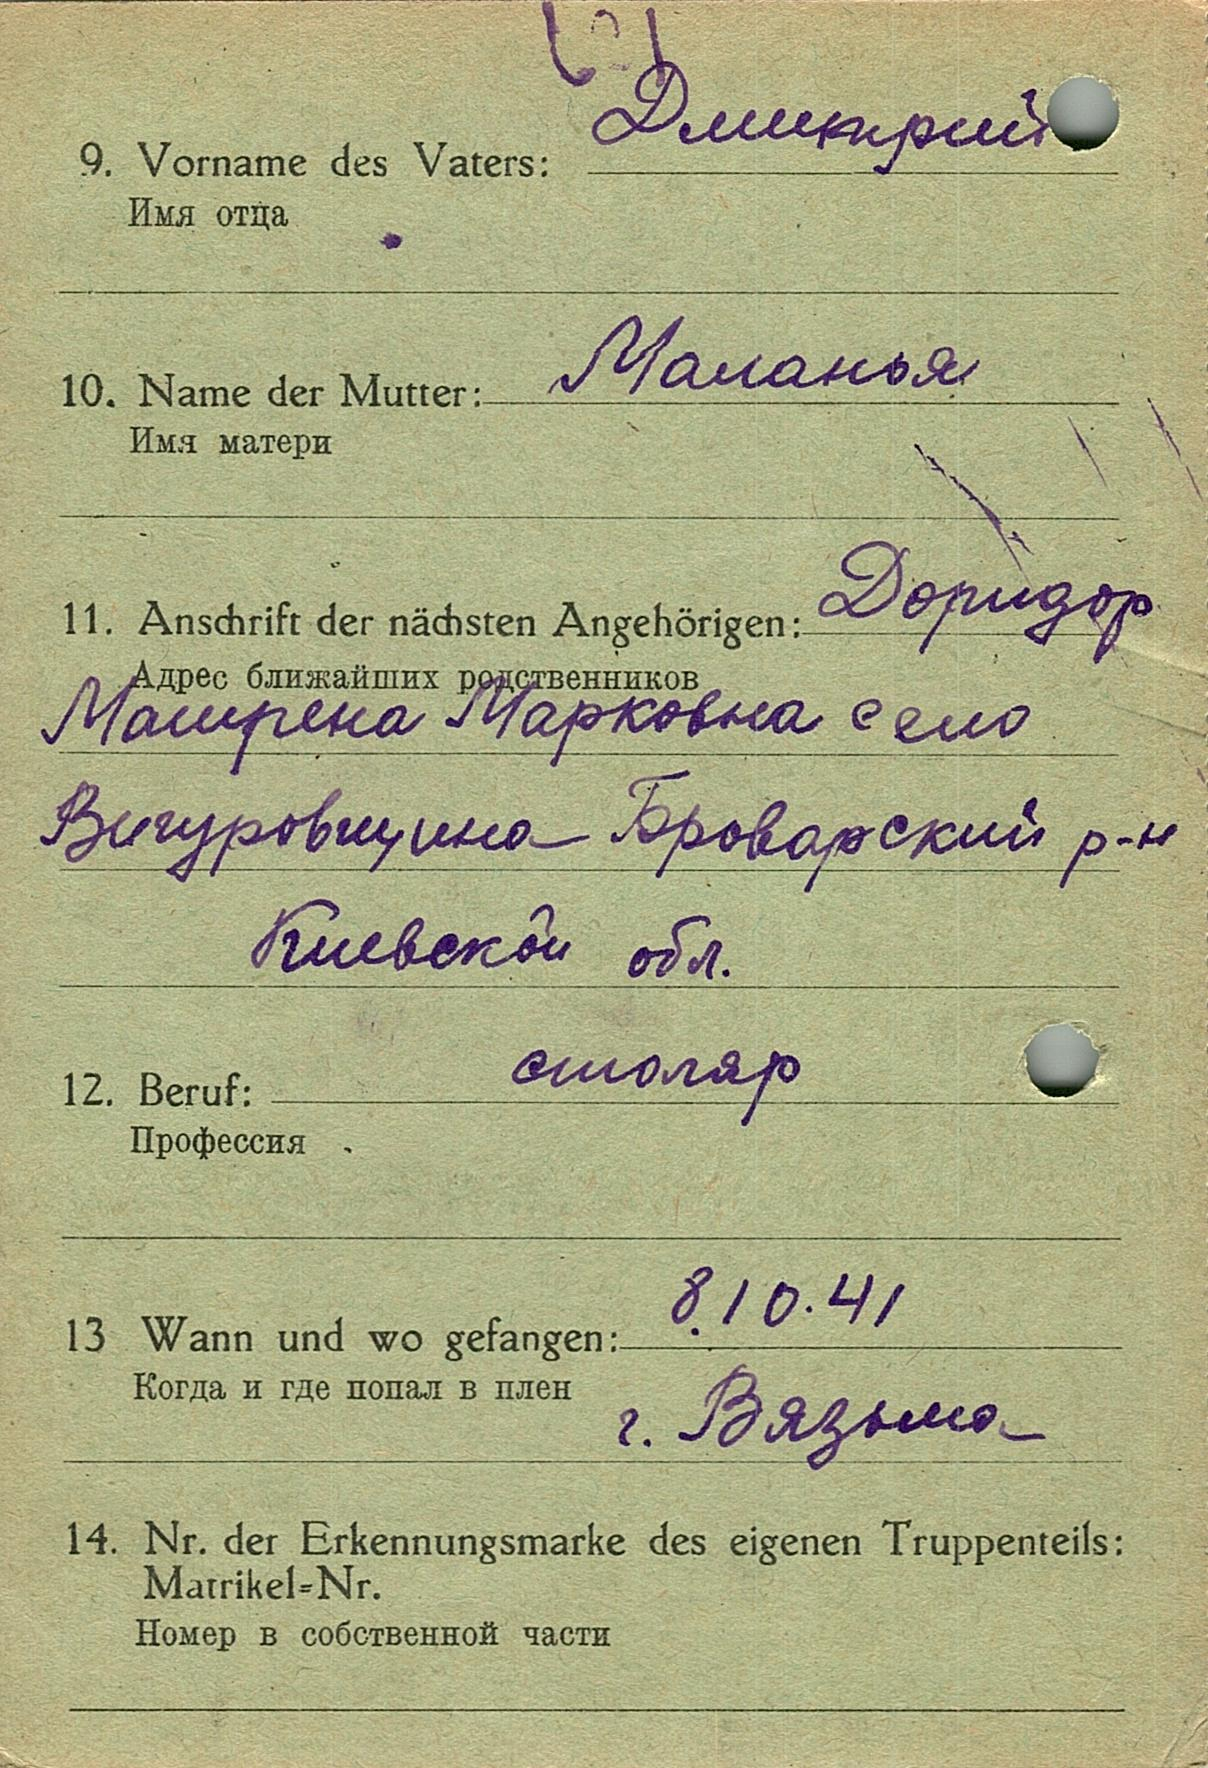 Дмитрий
9. Vorname des Vaters:
Имя отца
Маланья
10. Name der Mutter:
Имя матери
Доридор
11. Anschrift der nächsten Angehörigen:
Адрес ближайших родственников
Матрена Марковна село
Вигуровщина Броварский р-н
Киевской обл.
столяр
12. Beruf:
Профессия
8.10.41
13 Wann und wo gefangen:
Когда и где попал в плен
г. Вязьма
14. Nr. der Erkennungsmarke des eigenen Truppenteils:
Matrikel=Nr.
Номер в собственной части